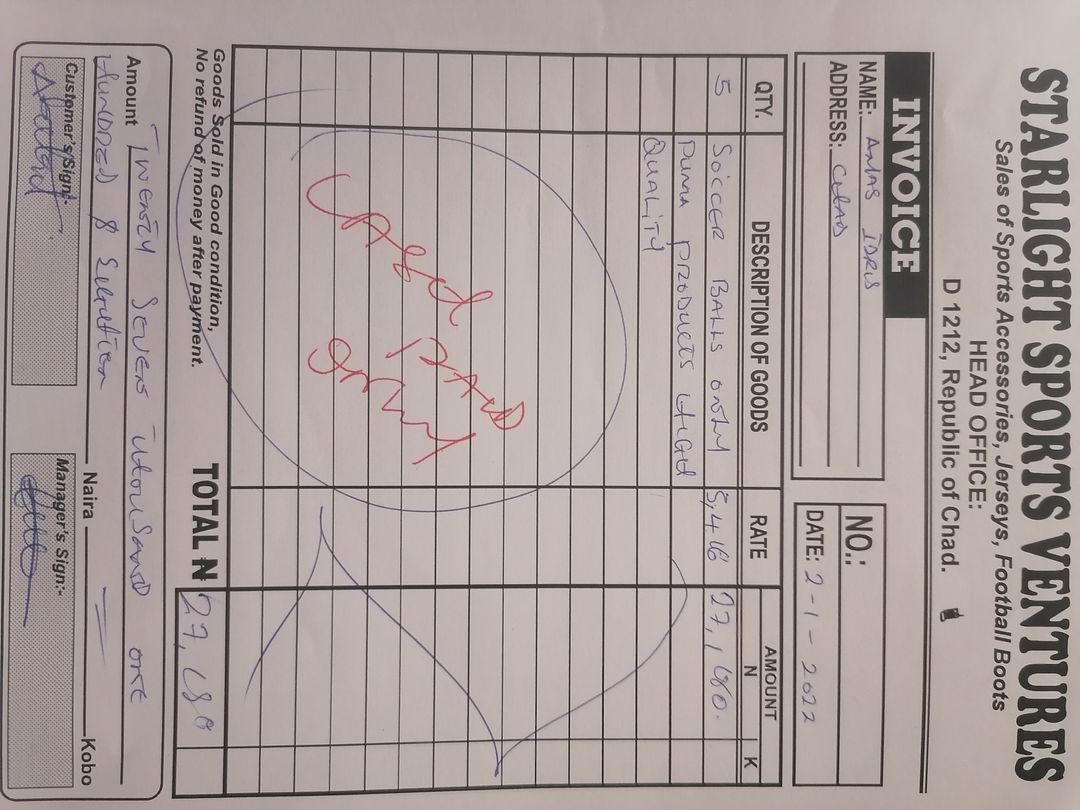 STARLIGHT SPORTS VENTURES
Sales of Sports Accessories, Jerseys, Football Boots
HEAD OFFICE:
D 1212, Republic of Chad.
INVOICE
NAME: ANAS IDRIS
ADDRESS: CHAD
NO.:
DATE: 2-1-2022
QTY. DESCRIPTION OF GOODS RATE AMOUNT
N K
5 SOCCER BALLS ONLY 5,416 27,180.
PUMA PRODUCTS HIGH
QUALITY
CASH
PAID
ONLY
Goods Sold in Good condition,
No refund of money after payment.
TOTAL ₦ 27,180
Amount TWENTY SEVEN THOUSAND ONE
HUNDRED & EIGHTIEN Naira = Kobo
Customer's Sign:-
Manager's Sign:-